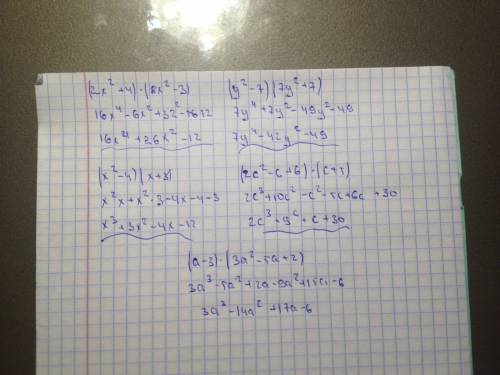 (2x²+4)·(8x²-3)
16x⁴-6x²+32²-12
16x⁴+26x²-12
(y²-7)(7y²+7)
7y⁴+7y²-49y²-49
7y⁴-42y²-49
(x²-4)(x+3)
x²x+x²·3-4x-4-3
x³+3x²-4x-12
(2c²-c+6)·(c+5)
2c³+10c²-c²-5c+6c+30
2c³+9c+c+30
(a-3)·(3a²-5a+2)
3a³-5a²+2a-9a²+15a-6
3a³-14a²+17a-6